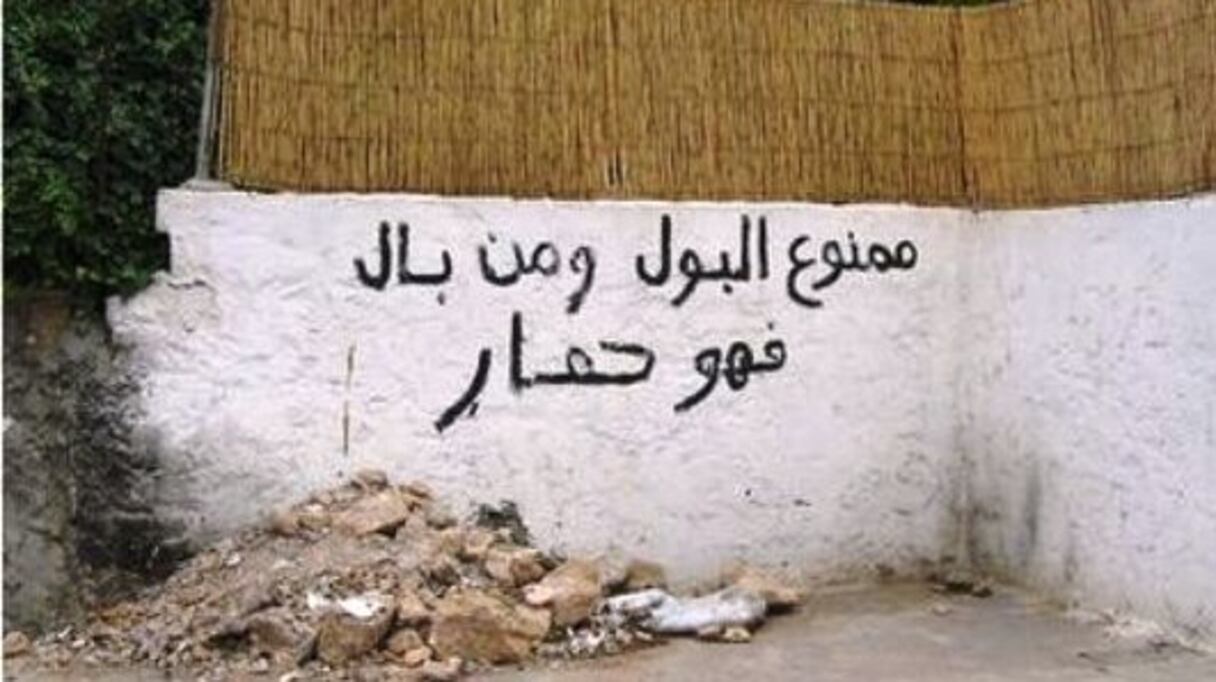 ممنوع البول ومن بال
فهو حمار